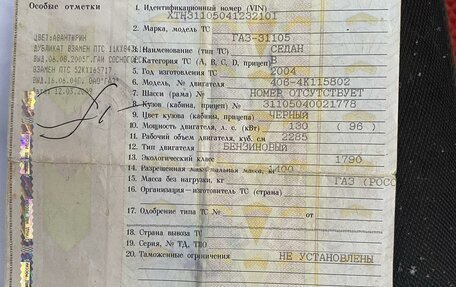 Особые отметки
ЦВЕТ:АВАНТЮРИН
ДУБЛИКАТ ВЗАМЕН ПТС
ВЗАМЕН ПТС 52КК165717
1. Идентификационный номер (VIN) ХТН31105041232101
2. Марка, модель ТС ГАЗ-31105
3. Наименование (тип ТС) СЕДАН
4. Категория ТС (А, В, С, D, прицеп) В
5. Год изготовления ТС 2004
6. Модель, № двигателя 406-4К115802
7. Шасси (рама) № НОМЕР ОТСУТСТВУЕТ
8. Кузов (кабина, прицеп) № 31105040021778
9. Цвет кузова (кабины, прицепа) ЧЕРНЫЙ
10. Мощность двигателя, л. с. (кВт) 130 ( 96 )
11. Рабочий объем двигателя, куб. см 2285
12. Тип двигателя БЕНЗИНОВЫЙ
13. Экологический класс
14. Разрешенная максимальная масса, кг 1790
15. Масса без нагрузки, кг 1400
16. Организация–изготовитель ТС (страна) ГАЗ (РОСС
17. Одобрение типа ТС № от
18. Страна вывоза ТС
19. Серия, № ТД, ТПО
20. Таможенные ограничения НЕ УСТАНОВЛЕНЫ